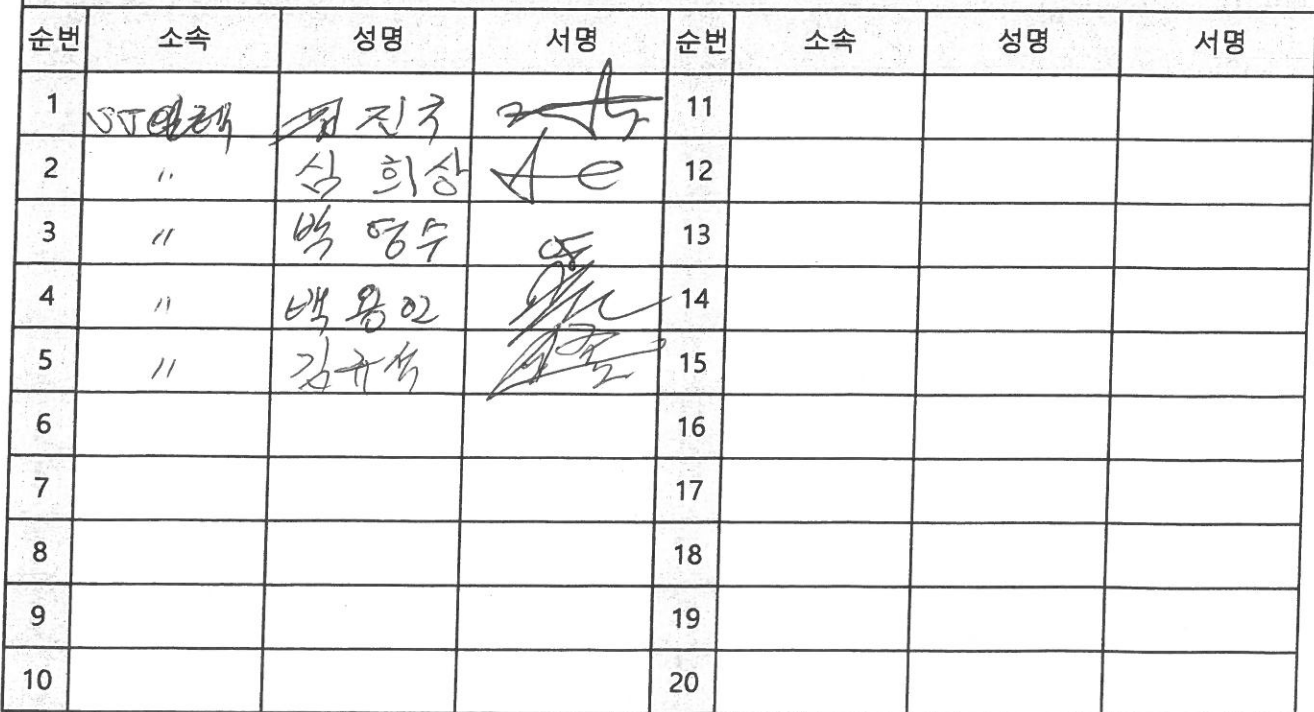 순번 소속 성명 서명 순번 소속 성명 서명
1 진국 11
2 〃 심 희상 12
3 〃 박 영수 13
4 〃 백용인 14
5 〃 김규석 15
6 16
7 17
8 18
9 19
10 20